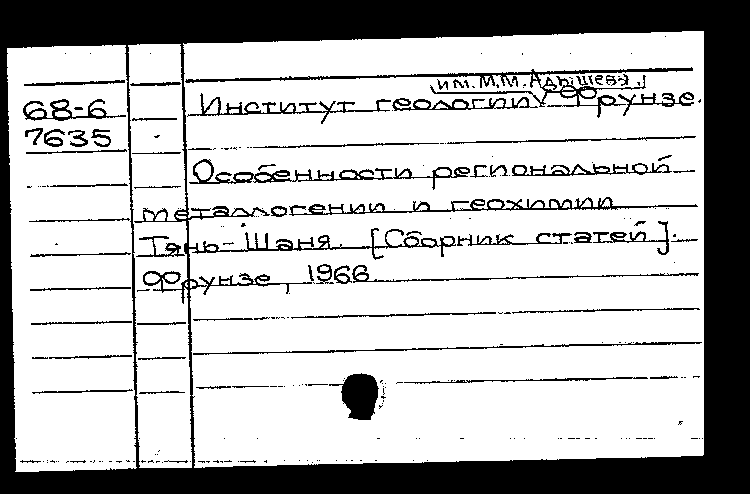 им. М.М. Адышева,
68-6 Институт геологии Фрунзе.
7635
Особенности региональной
металлогении и геохимии
Тянь-Шаня. [Сборник статей].
Фрунзе, 1966.